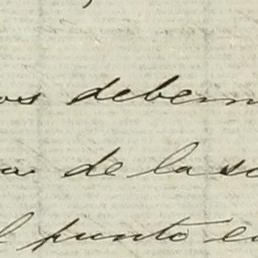 os debem
a de la so
l punto en